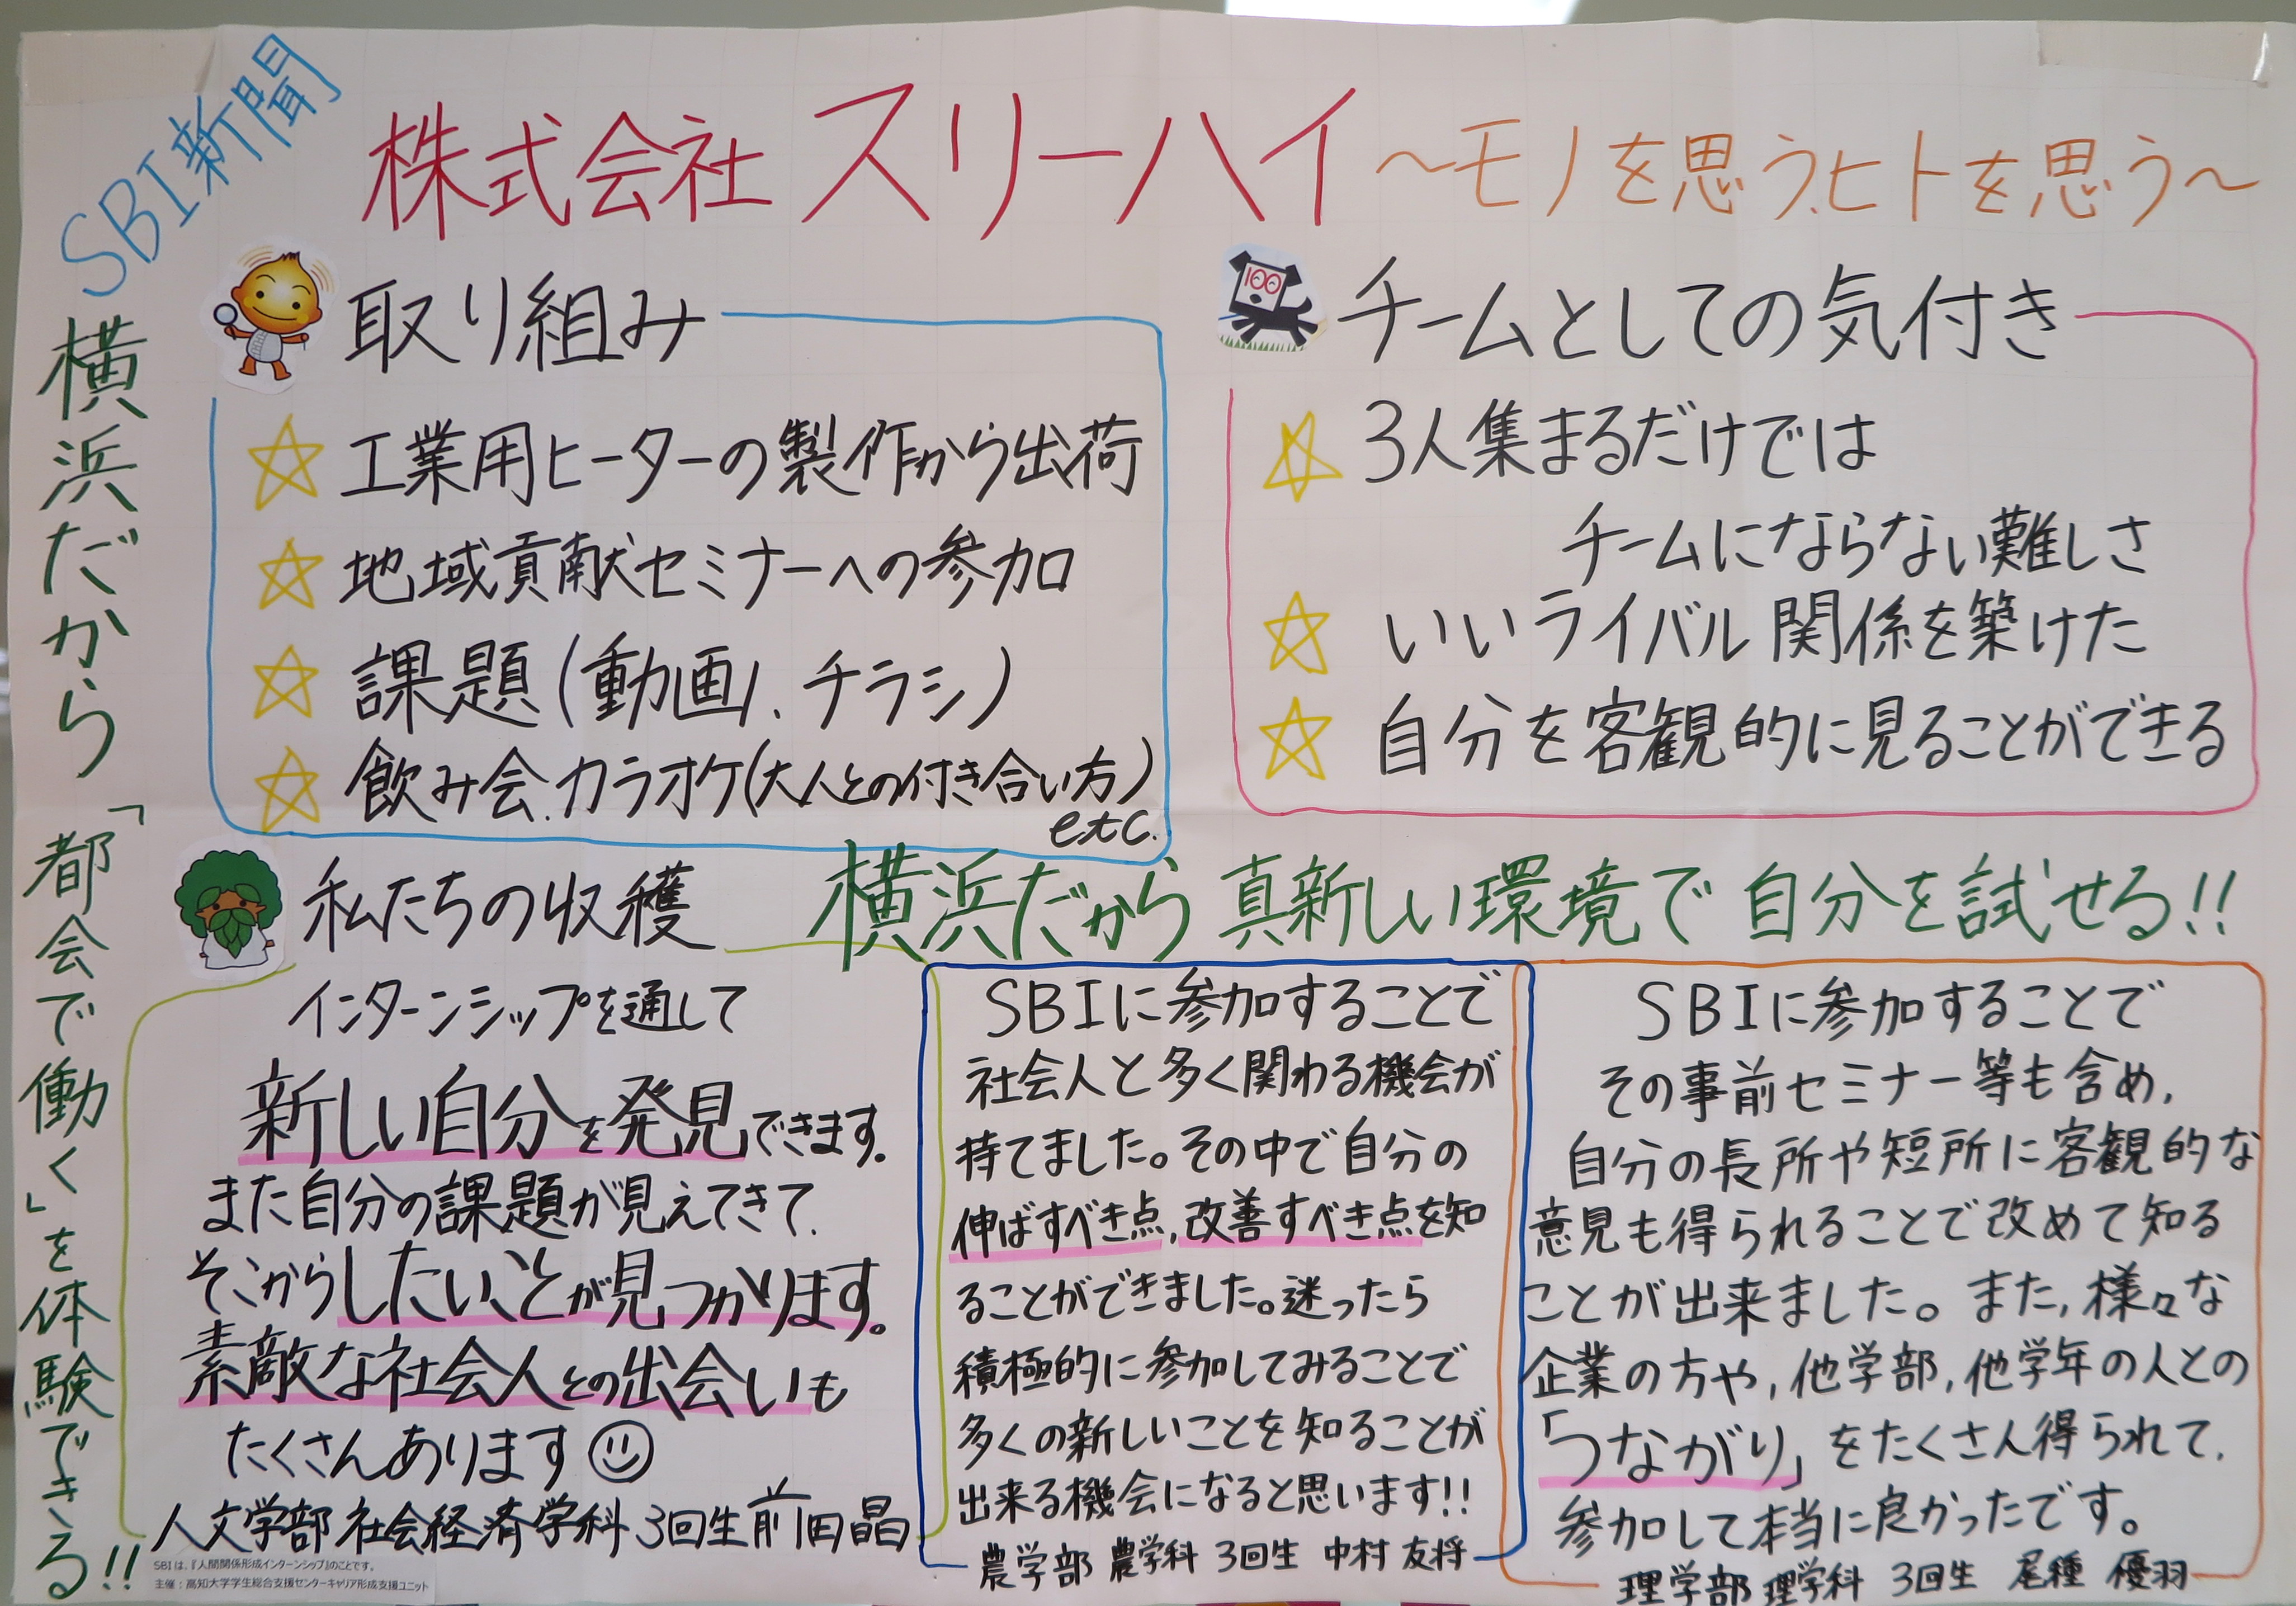 SBI新聞
株式会社 スリーハイ 〜モノを思う、ヒトを思う〜
横浜だから「都会で働く」を体験できる!!
取り組み
☆ 工業用ヒーターの製作から出荷
☆ 地域貢献セミナーへの参加
☆ 課題(動画、チラシ)
☆ 飲み会、カラオケ(大人との付き合い方)
etc.
100
チームとしての気付き
☆ 3人集まるだけでは
チームにならない難しさ
☆ いいライバル関係を築けた
☆ 自分を客観的に見ることができる
横浜だから 真新しい環境で 自分を試せる!!
私たちの収穫
インターンシップを通して
新しい自分を発見できます。
また自分の課題が見えてきて、
そこからしたいことが見つかります。
素敵な社会人との出会いも
たくさんあります
人文学部 社会経済学科 3回生 前田晶
SBIは、『人間関係形成インターンシップ』のことです。
主催：高知大学学生総合支援センターキャリア形成支援ユニット
SBIに参加することで
社会人と多く関わる機会が
持てました。その中で自分の
伸ばすべき点、改善すべき点を知
ることができました。迷ったら
積極的に参加してみることで
多くの新しいことを知ることが
出来る機会になると思います!!
農学部 農学科 3回生 中村 友将
SBIに参加することで
その事前セミナー等も含め、
自分の長所や短所に客観的な
意見も得られることで改めて知る
ことが出来ました。また、様々な
企業の方や、他学部、他学年の人との
「つながり」をたくさん得られて、
参加して本当に良かったです。
理学部 理学科 3回生 尾種 優羽